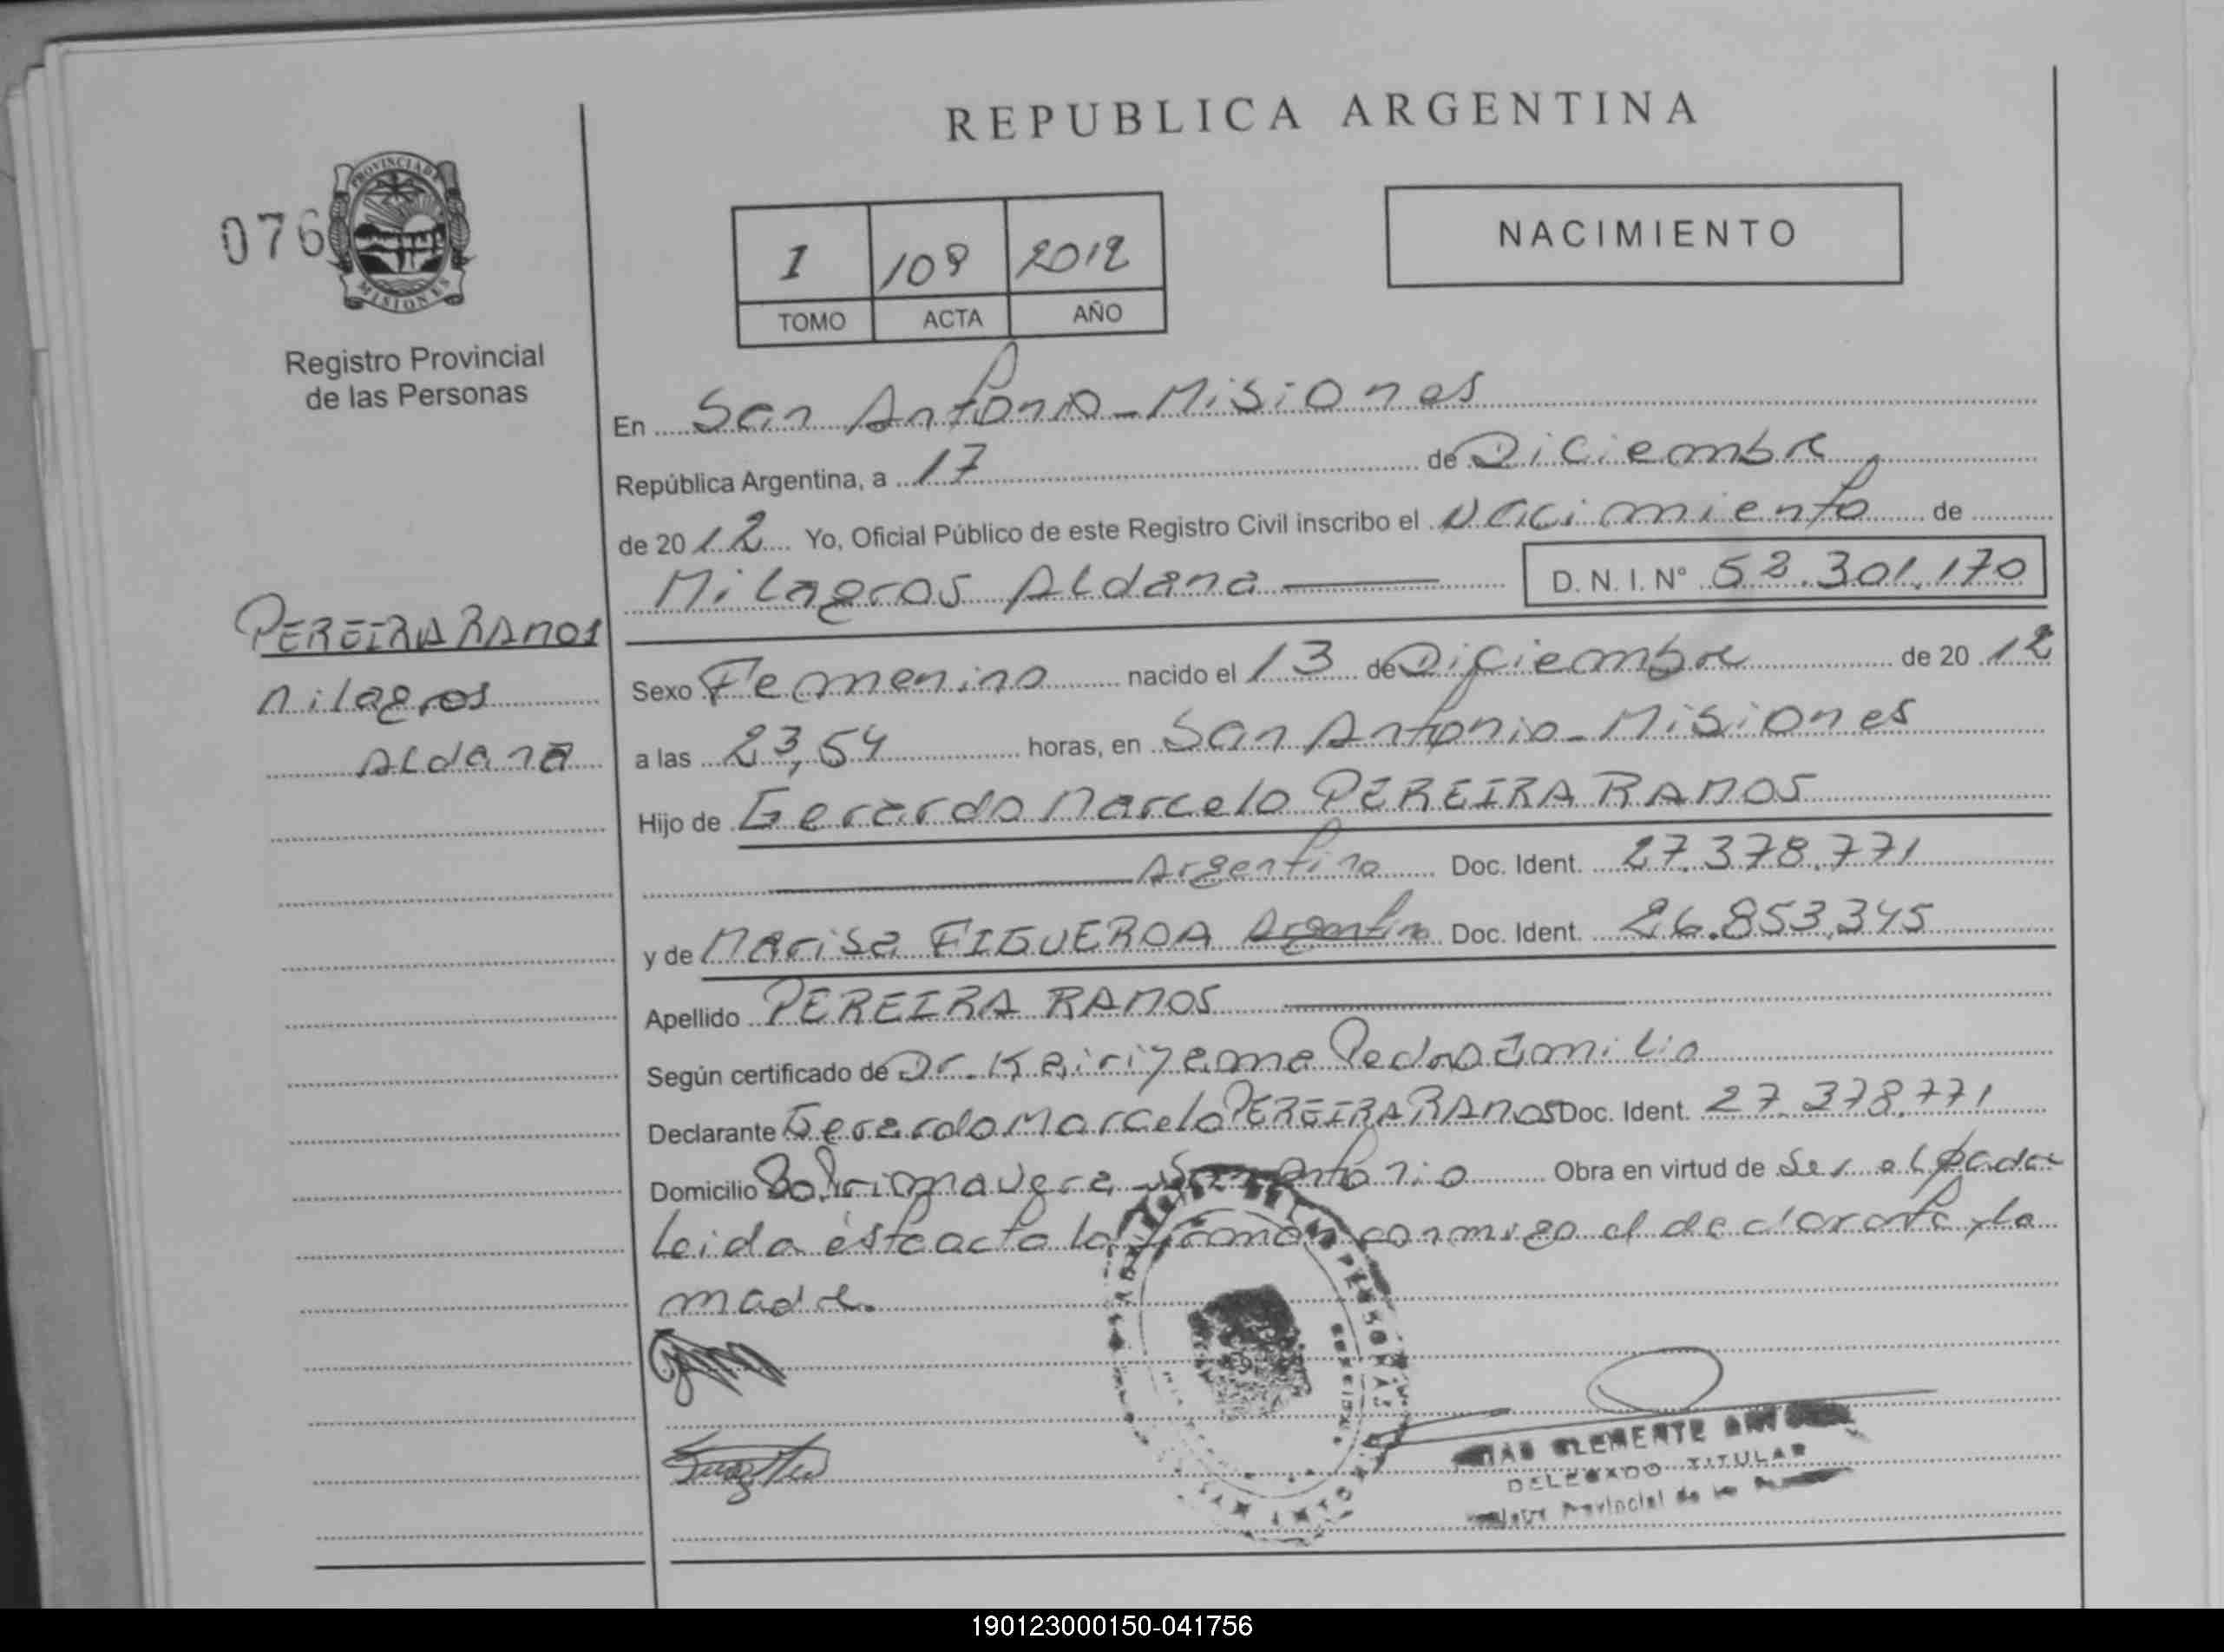 REPUBLICA ARGENTINA
076
PROVINCIA DE
MISIONES
Registro Provincial
de las Personas
1 108 2012
TOMO ACTA AÑO
NACIMIENTO
PEREIRA RAMOS
Milagros
Aldana
En San Antonio - Misiones
República Argentina, a 17 de Diciembre
de 2012 Yo, Oficial Público de este Registro Civil inscribo el Nacimiento de
Milagros Aldana D. N. I. N° 52.301.170
Sexo Femenino nacido el 13 de Diciembre de 2012
a las 23,54 horas, en San Antonio - Misiones
Hijo de Gerardo Marcelo PEREIRA RAMOS
Argentino Doc. Ident. 27.378.771
y de Marisa FIGUEROA Argentina Doc. Ident. 26.853.345
Apellido PEREIRA RAMOS
Según certificado de Dr. Keiriyama Pedro
Declarante Gerardo Marcelo PEREIRA RAMOS Doc. Ident. 27.378.771
Domicilio Bo. Primavera San Antonio Obra en virtud de Ser el padre
Leida ésta acta la firman conmigo el declarante y la
madre.
CLEMENTE
DELEGADO TITULAR
Provincial de
190123000150-041756